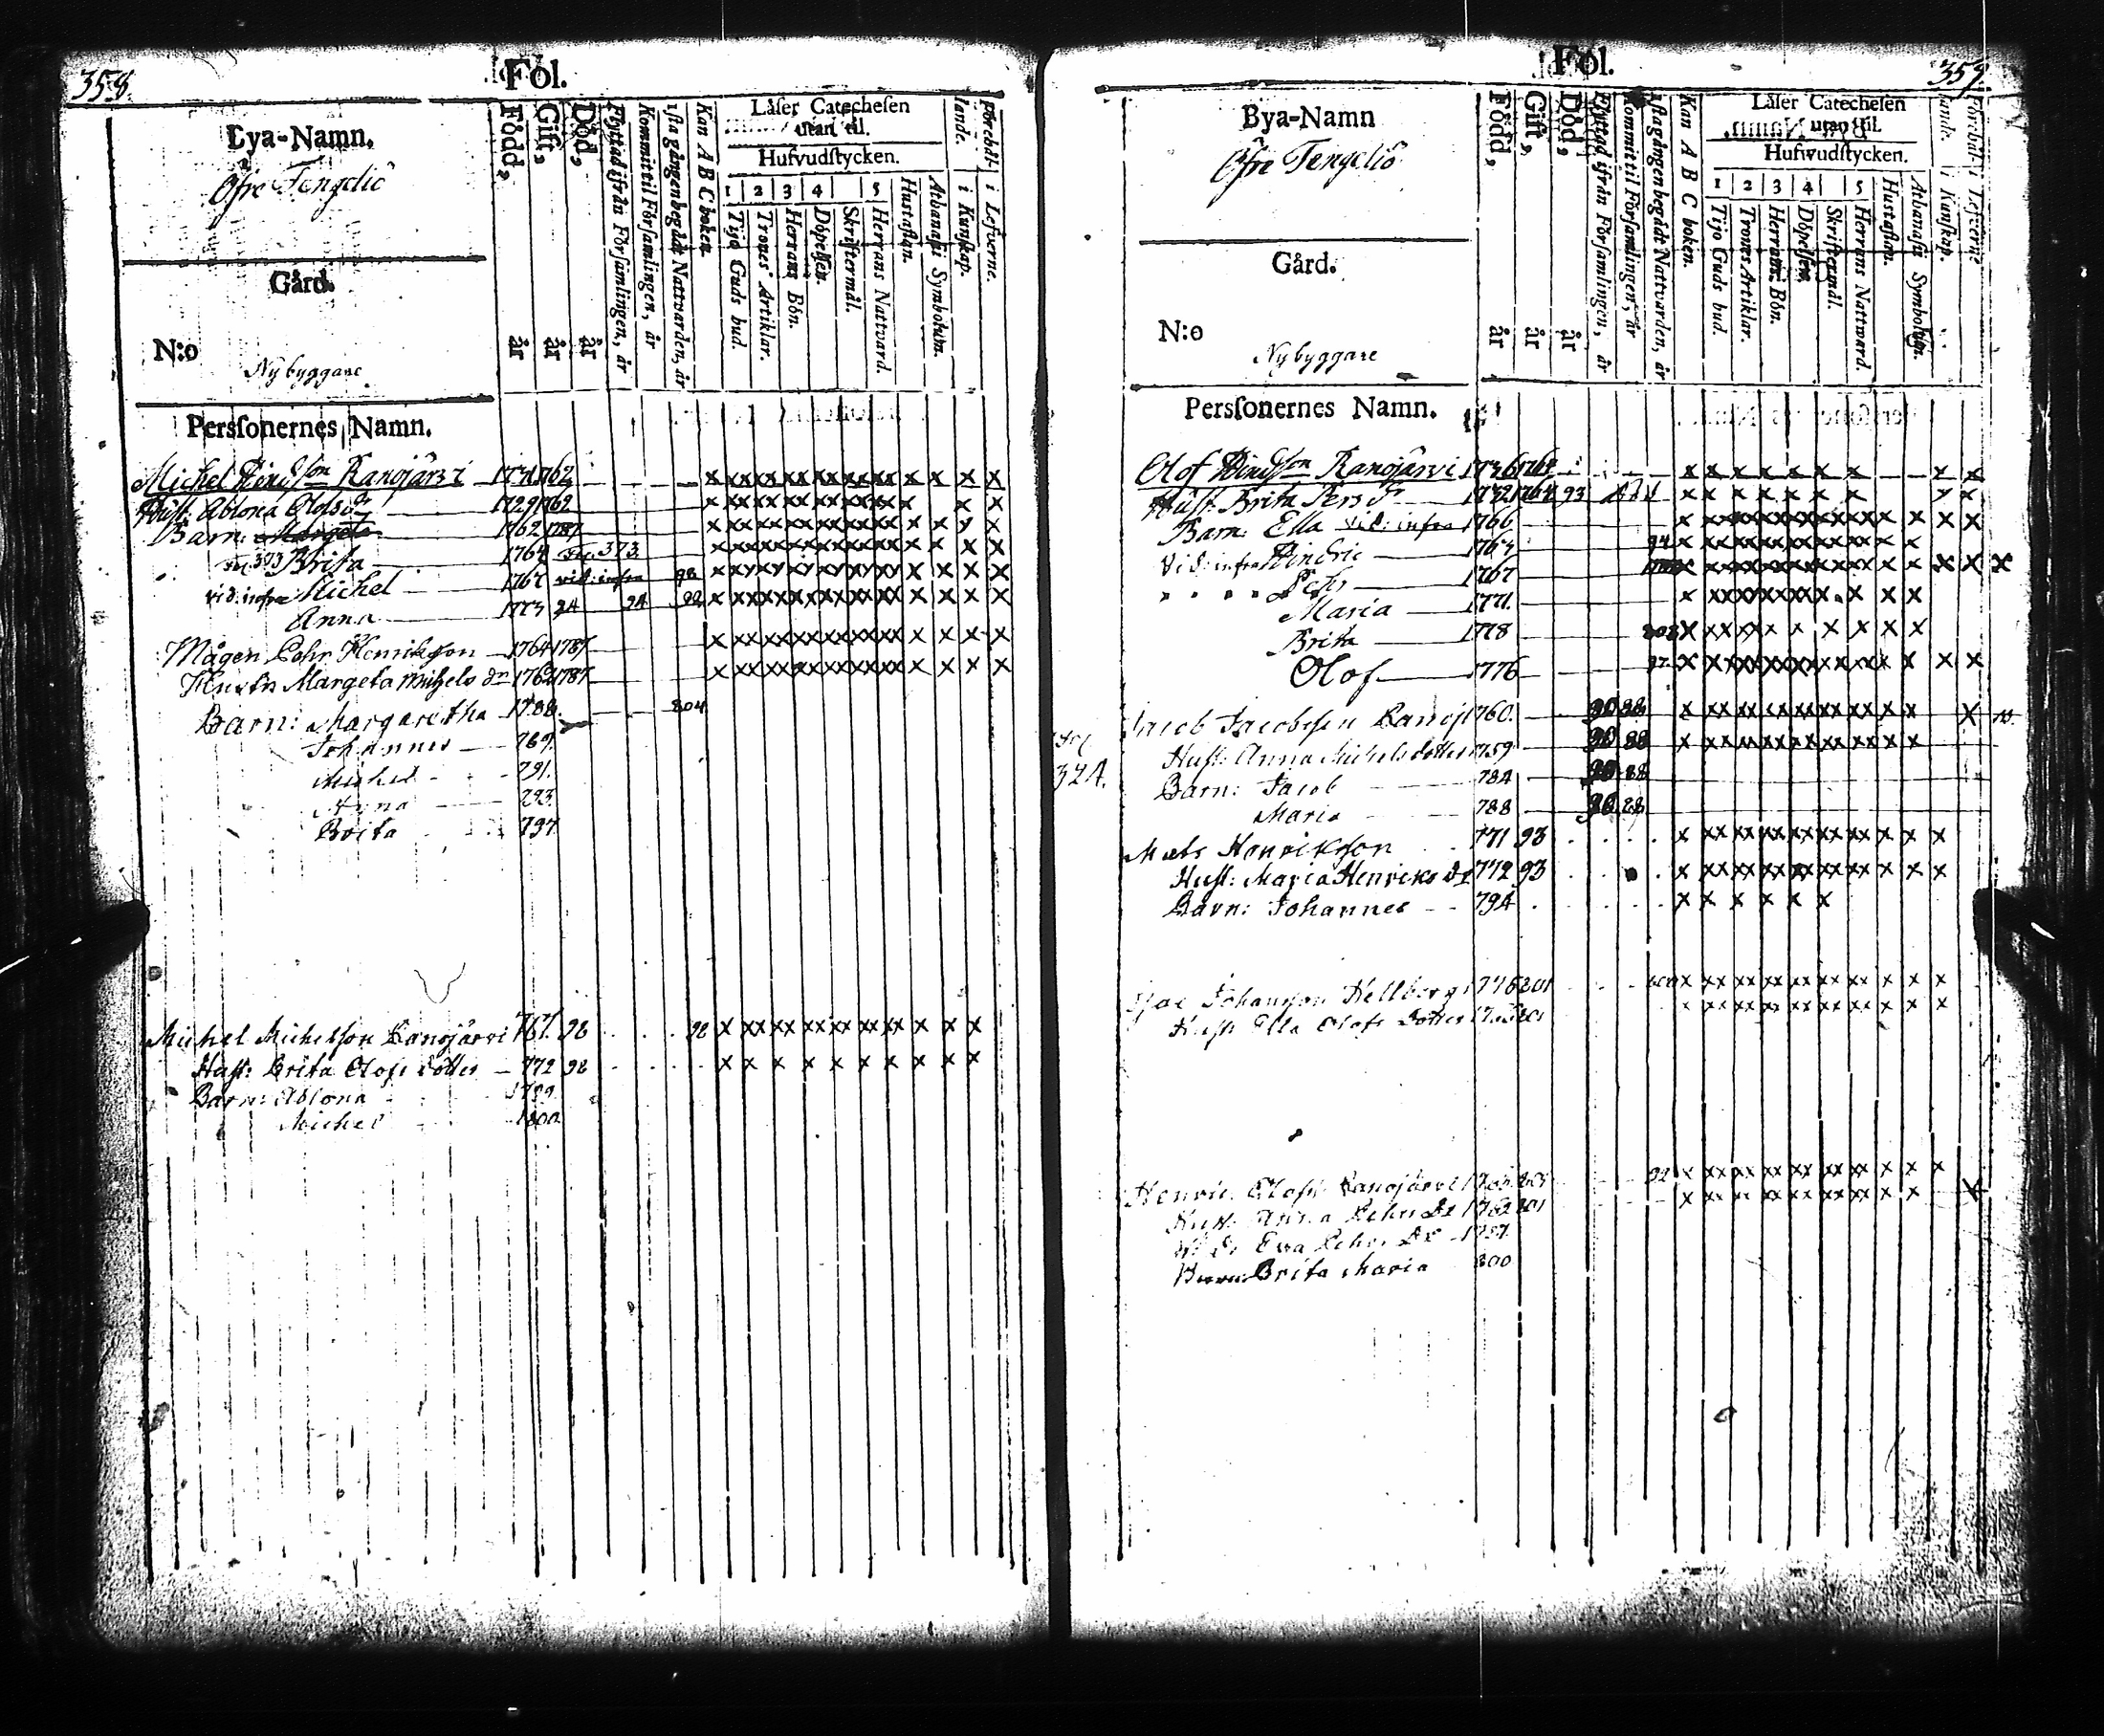 358.
Fol.
Bya-Namn.
Öfre Tengeliö
Gård.
N:o
Nybyggare
Född, år
Gift, år
Död, år
Flyttad ifrån Församlingen, år
Kommit til Församlingen, år
1sta gången begådt Nattvarden, år
Kan A B C boken.
Läser Catechesen
utan til.
Hufvudstycken.
1 2 3 4 5
Tijo Guds bud.
Trones Artiklar.
Herrans Bön.
Döpelsen.
Skriftermål.
Herrans Nattvard.
Hustaflan.
Athanasii Symbolum.
i Kunskap.
i Lefverne.
Personernes Namn.
Michel Hindsson Kanojärvi 1731 1762 x xx xx xx xx xx xx x x x x
Hust. Ablona Olofs dr 1729 1762 x xx xx xx xx xx xx x x x
Barn: Margeta 1762 1787 x xx xx xx xx xx xx x x x x
373 Brita 1764 Fol. 373. x xx xx xx xx xx xx x x x x
vid: infra Michel 1767 vid: infra 98 x xx xx xx xx xx xx x x x x
Anna 1773 94 94 x xx xx xx xx xx xx x x x x
Mågen Pehr Henriksson 1764 1787 x xx xx xx xx xx xx x x x x
Hustr Margeta Michels dr 1762 1787 x xx xx xx xx xx xx x x x x
Barn: Margaretha 1788. 804
Johannes 789.
Michel 791.
Anna 793.
Brita 797.
Michel Michelsson Kanojärvi 767. 98 98 x xx xx xx xx xx xx x x x x
Hust: Brita Olofs dotter 772 98 x x x x x x x x x x
Barn: Ablona 1799.
Michel 1800.
Fol.
359.
Bya-Namn
Öfre Tengeliö
Gård.
N:o
Nybyggare
Född, år
Gift, år
Död, år
Flyttad ifrån Församlingen, år
Kommit til Församlingen, år
1sta gången begådt Nattvarden, år
Kan A B C boken.
Läser Catechesen
utan til.
Hufwudstycken.
1 2 3 4 5
Tijo Guds bud.
Trones Artiklar.
Herrans Bön.
Döpelsen.
Skriftermål.
Herrans Nattvard.
Hustaflan.
Athanasii Symbolum.
i Kunskap.
i Lefverne
Personernes Namn.
Olof Hindsson Kanojärvi 1736 1764 x x x x x x x x x
Hust. Brita Pers dr 1732 1764 93 x x x x x x x x x
Barn: Ella vid: infra 1766 x xx xx xx xx xx xx x x x x
Vid: infra Hindric 94 x xx xx xx xx xx xx x x
Pehr 1767 x xx xx xx xx xx xx x x x x x
Maria 1771. x xx xx xx xx x x x
Brita 1778 x xx xx x x x x x x
Olof 1776 92 x x xx xx xx xx xx x x x x
Jacob Jacobsson Kanojä 1760. 90 88 x xx xx xx xx xx xx x x x
324.
Hust: Anna Michelsdotter 1759 90 88 x xx xx xx xx xx xx x x
Barn: Jacob 784 90 88
Maria 788 90 88
Mats Henriksson 771 93 x xx xx xx xx xx xx x x x
Hust: Maria Henriks dr 772 93 x xx xx xx xx xx xx x x x
Barn: Johannes 794 x x x x x x
Johansson Hellberg x xx xx xx xx xx xx x x x
Hust: Ella Olofs dotter x xx xx xx xx xx xx x x
Henric Olofss. Kanojärvi 92 x xx xx xx xx xx xx x x x
Hust: Anna Pehrs dr 1762 801 x xx xx xx xx xx xx x x x
Eva Pehrs dr
Barn: Brita Maria 800